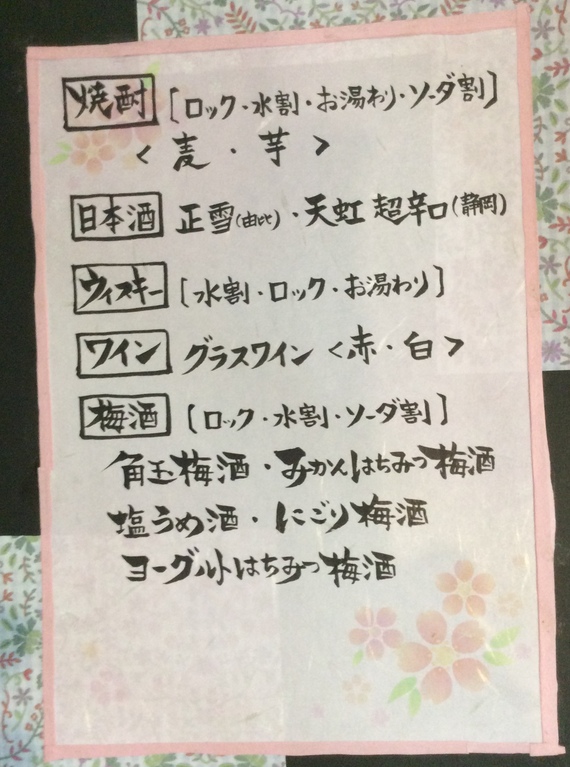 焼酎 [ロック・水割・お湯わり・ソーダ割]
<麦・芋>
日本酒 正雪(由比)・天虹 超辛口(静岡)
ウィスキー [水割・ロック・お湯わり]
ワイン グラスワイン <赤・白>
梅酒 [ロック・水割・ソーダ割]
角玉梅酒・みかんはちみつ梅酒
塩うめ酒・にごり梅酒
ヨーグルトはちみつ梅酒